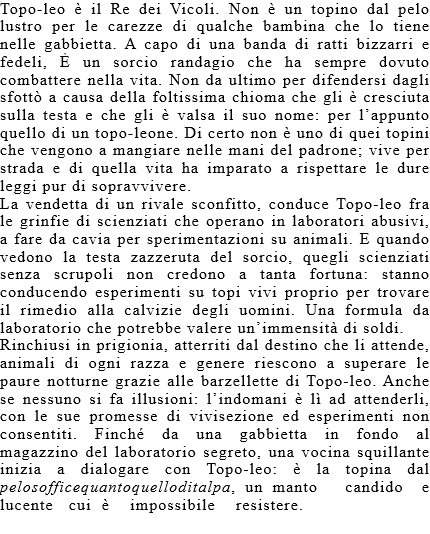 Topo-leo è il Re dei Vicoli. Non è un topino dal pelo
lustro per le carezze di qualche bambina che lo tiene
nelle gabbietta. A capo di una banda di ratti bizzarri e
fedeli, È un sorcio randagio che ha sempre dovuto
combattere nella vita. Non da ultimo per difendersi dagli
sfottò a causa della foltissima chioma che gli è cresciuta
sulla testa e che gli è valsa il suo nome: per l’appunto
quello di un topo-leone. Di certo non è uno di quei topini
che vengono a mangiare nelle mani del padrone; vive per
strada e di quella vita ha imparato a rispettare le dure
leggi pur di sopravvivere.
La vendetta di un rivale sconfitto, conduce Topo-leo fra
le grinfie di scienziati che operano in laboratori abusivi,
a fare da cavia per sperimentazioni su animali. E quando
vedono la testa zazzeruta del sorcio, quegli scienziati
senza scrupoli non credono a tanta fortuna: stanno
conducendo esperimenti su topi vivi proprio per trovare
il rimedio alla calvizie degli uomini. Una formula da
laboratorio che potrebbe valere un’immensità di soldi.
Rinchiusi in prigionia, atterriti dal destino che li attende,
animali di ogni razza e genere riescono a superare le
paure notturne grazie alle barzellette di Topo-leo. Anche
se nessuno si fa illusioni: l’indomani è lì ad attenderli,
con le sue promesse di vivisezione ed esperimenti non
consentiti. Finché da una gabbietta in fondo al
magazzino del laboratorio segreto, una vocina squillante
inizia a dialogare con Topo-leo: è la topina dal
pelosofficequantoquelloditalpa, un manto candido e
lucente cui è impossibile resistere.